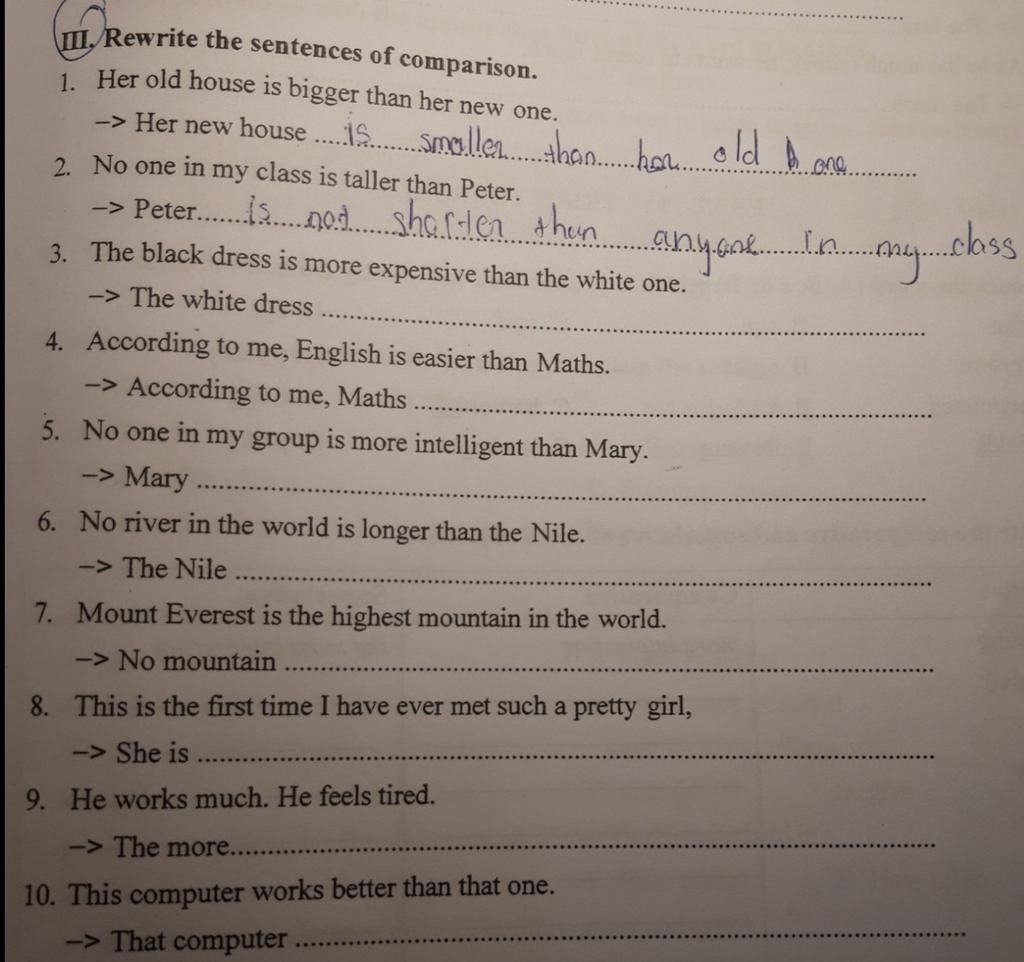 III. Rewrite the sentences of comparison.
1. Her old house is bigger than her new one.
–> Her new house ....is.......smaller......than......her.....old one..........
2. No one in my class is taller than Peter.
–> Peter.......is....not.....shorter than .......anyone......in......my.....class
3. The black dress is more expensive than the white one.
–> The white dress ..........................................................................
4. According to me, English is easier than Maths.
–> According to me, Maths ..........................................................................
5. No one in my group is more intelligent than Mary.
–> Mary ..........................................................................
6. No river in the world is longer than the Nile.
–> The Nile ..........................................................................
7. Mount Everest is the highest mountain in the world.
–> No mountain ..........................................................................
8. This is the first time I have ever met such a pretty girl,
–> She is ..........................................................................
9. He works much. He feels tired.
–> The more..........................................................................
10. This computer works better than that one.
–> That computer ..........................................................................